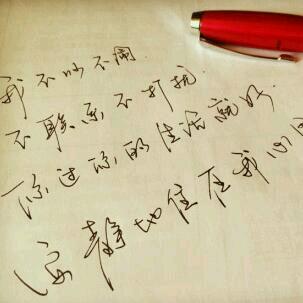 我不吵不闹.
不联系不打扰.
你过你的生活就好.
安静地住在我心